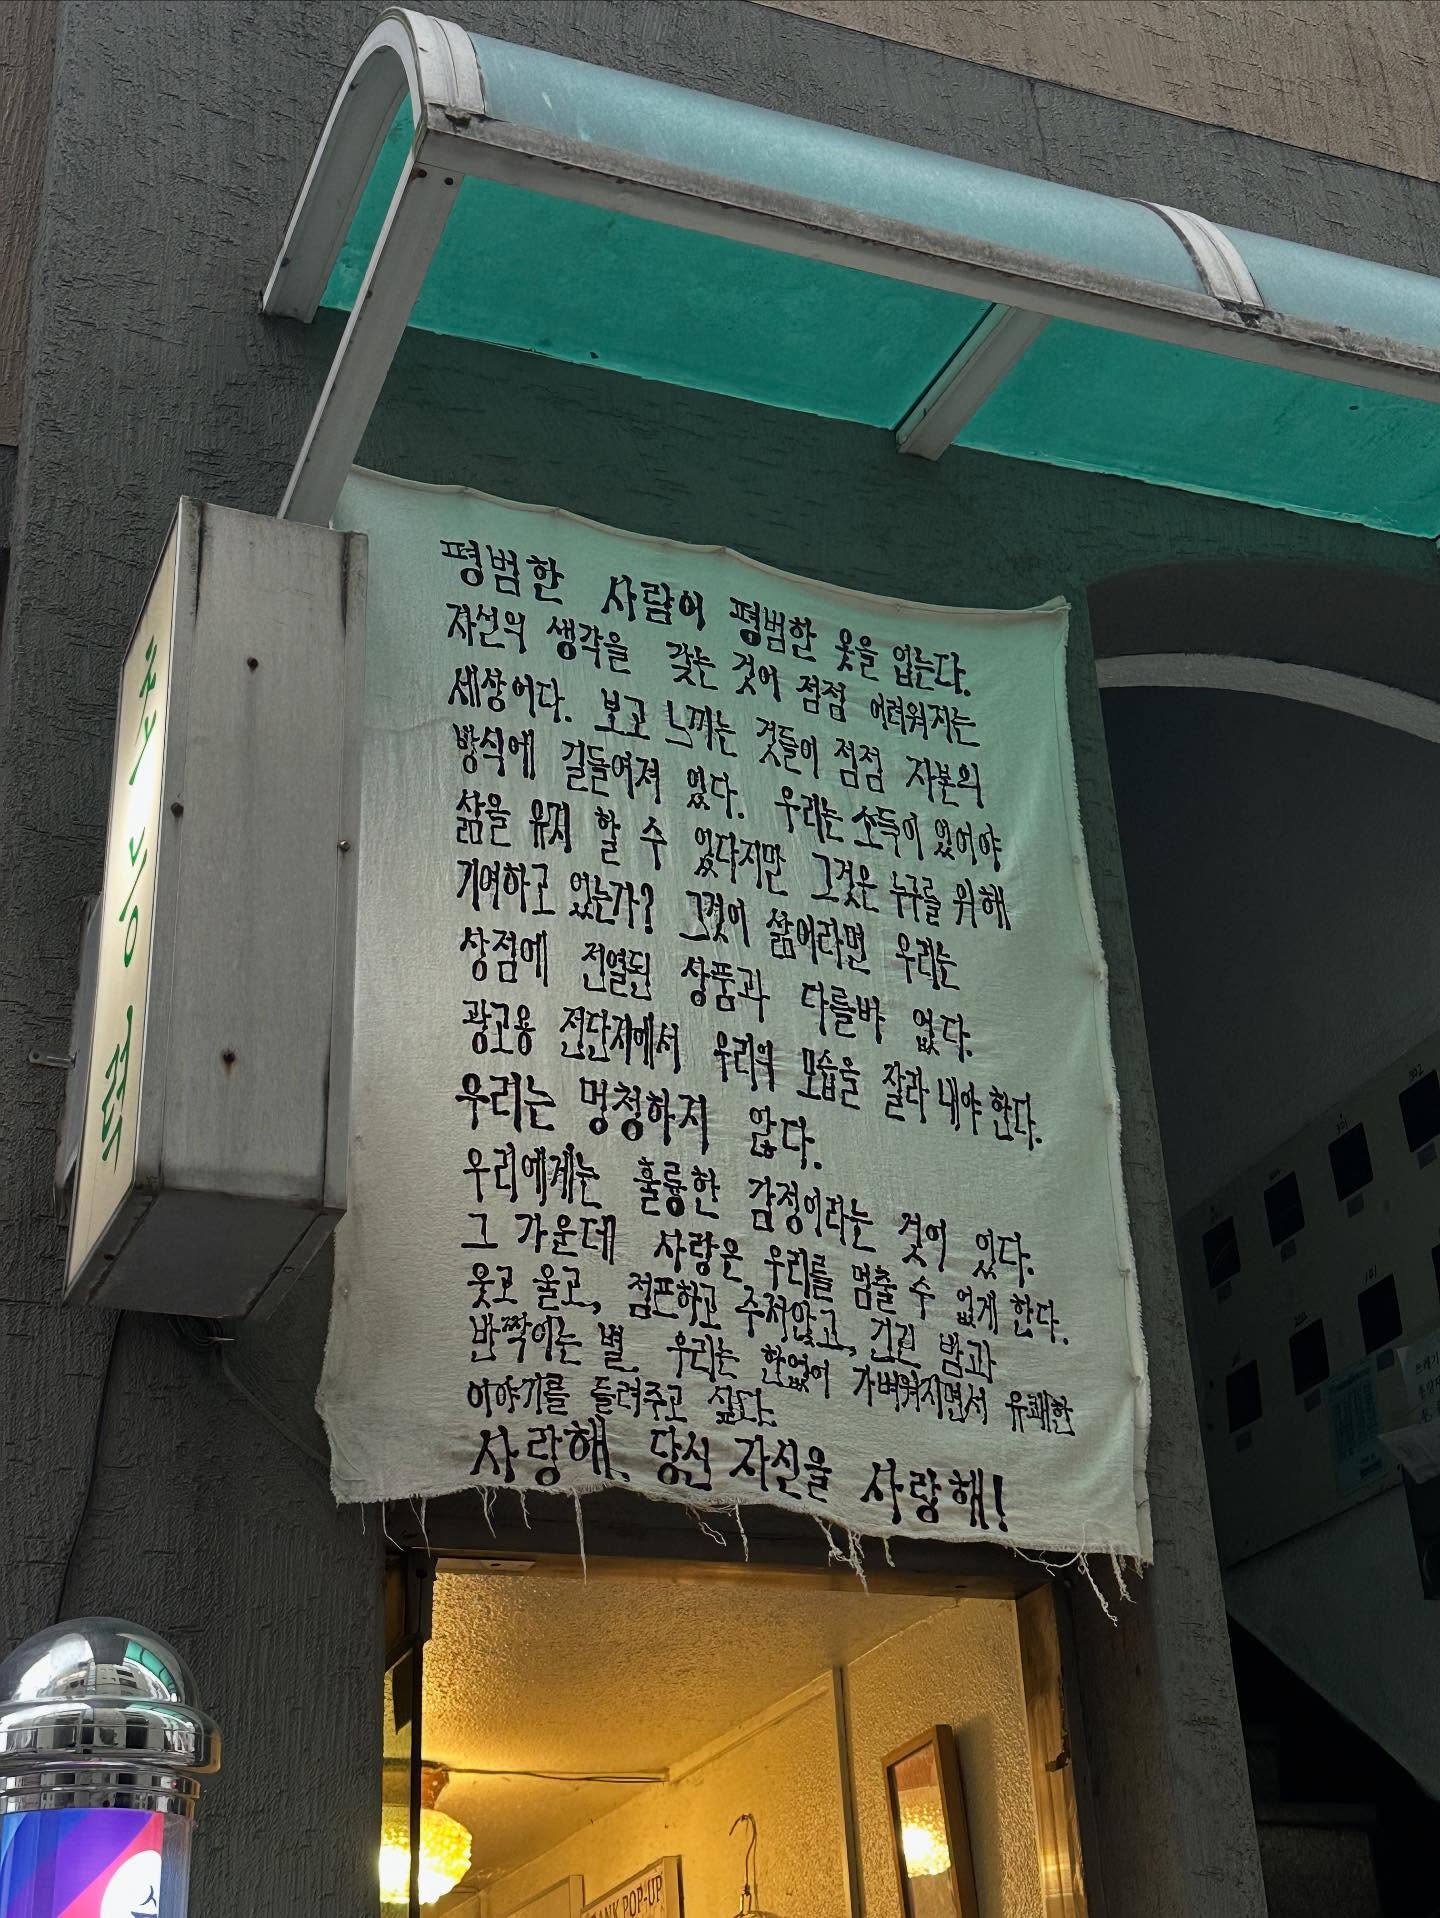 평범한 사람이 평범한 옷을 입는다.
자신의 생각을 갖는 것이 점점 어려워지는
세상이다. 보고 느끼는 것들이 점점 자본의
방식에 길들여져 있다. 우리는 소득이 있어야
삶을 유지 할 수 있다지만 그것은 누구를 위해
기여하고 있는가? 그것이 삶이라면 우리는
상점에 진열된 상품과 다를바 없다.
광고용 전단지에서 우리의 모습을 잘라 내야 한다.
우리는 멍청하지 않다.
우리에게는 훌륭한 감정이라는 것이 있다.
그 가운데 사랑은 우리를 멈출 수 없게 한다.
웃고 울고, 점프하고 주저앉고, 긴긴 밤과
반짝이는 별. 우리는 한없이 가벼워지면서 유쾌한
이야기를 들려주고 싶다.
사랑해. 당신 자신을 사랑해!
초능력
POP-UP
302
301